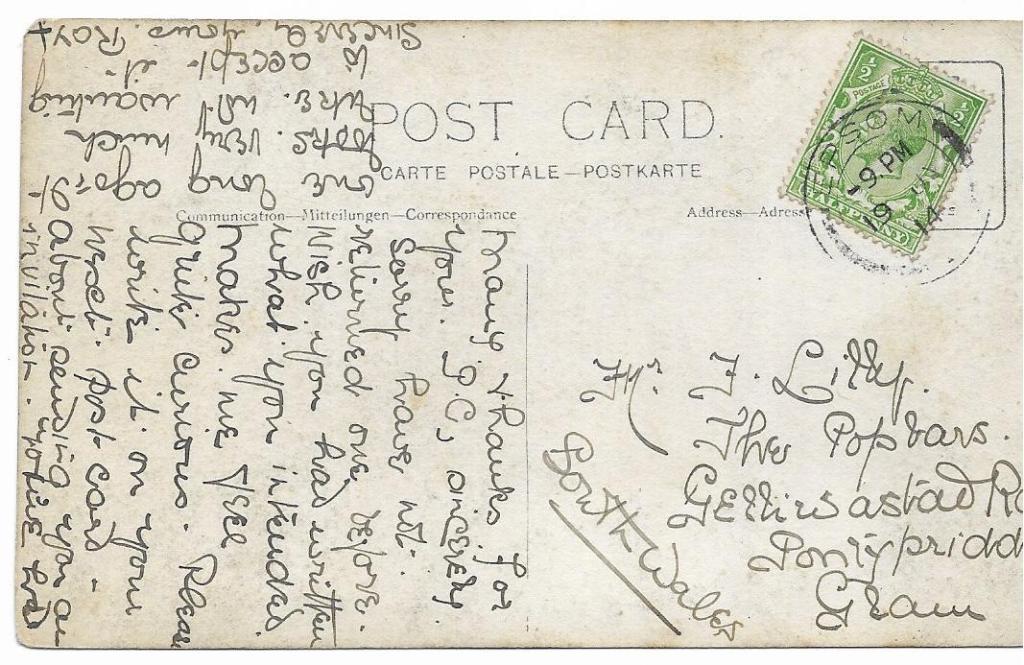 POST CARD.
CARTE POSTALE—POSTKARTE
Communication—Mitteilungen—Correspondance
Address—Adresse
½ ½
POSTAGE
HALFPENNY
PSOM
9. PM
19 JN
14
Many thanks for
your P.C, sincerely
Sorry have not.
returned one, before.
Wish you had written
what you intended
makes me feel
quite curious. Please
write it on your
next post card -
About sending you an
invitation. you've had
one long ago, It
looks. very much
like. us. wanting
to accept it.
Sincerely yours. Roy +
Mr. F. Lilly.
The Poplars.
Gelliwastad Ro
Pontypridd
Glam
South Wales